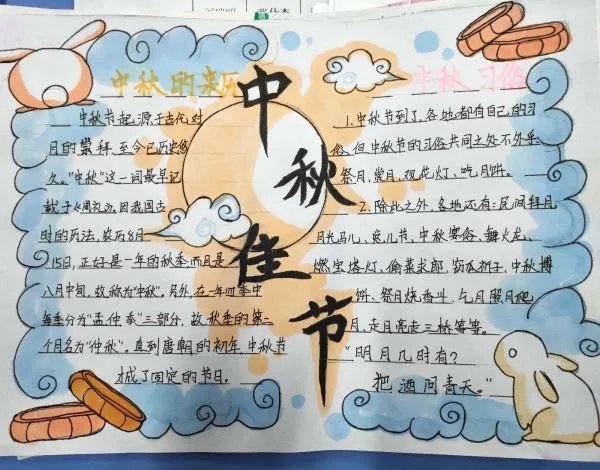 中秋的来历
中秋节起源于古代对
月的崇拜，至今已历史悠
久。"中秋"这一词最早记
载于《周礼》。因我国古
时的历法，农历8月
15日，正好是一年的秋季，而且是
八月中旬，故称为"中秋"。另外，在一年四季中
每季分为"孟仲季"三部分，故秋季的第二
个月名为"仲秋"。直到唐朝的初年，中秋节
才成了固定的节日。
中秋佳节
中秋习俗
1.中秋节到了，各地都有自己的习
俗，但中秋节的习俗共同之处不外乎
祭月、赏月、观花灯、吃月饼。
2.除此之外，各地还有：民间拜月、
月光马儿、兔儿节、中秋宴俗、舞火龙、
燃宝塔灯、偷菜求郎、窃瓜祈子、中秋博
饼、祭月烧香斗、乞月照月爬
月、走月亮走三桥等等。
"明月几时有？
把酒问青天。"